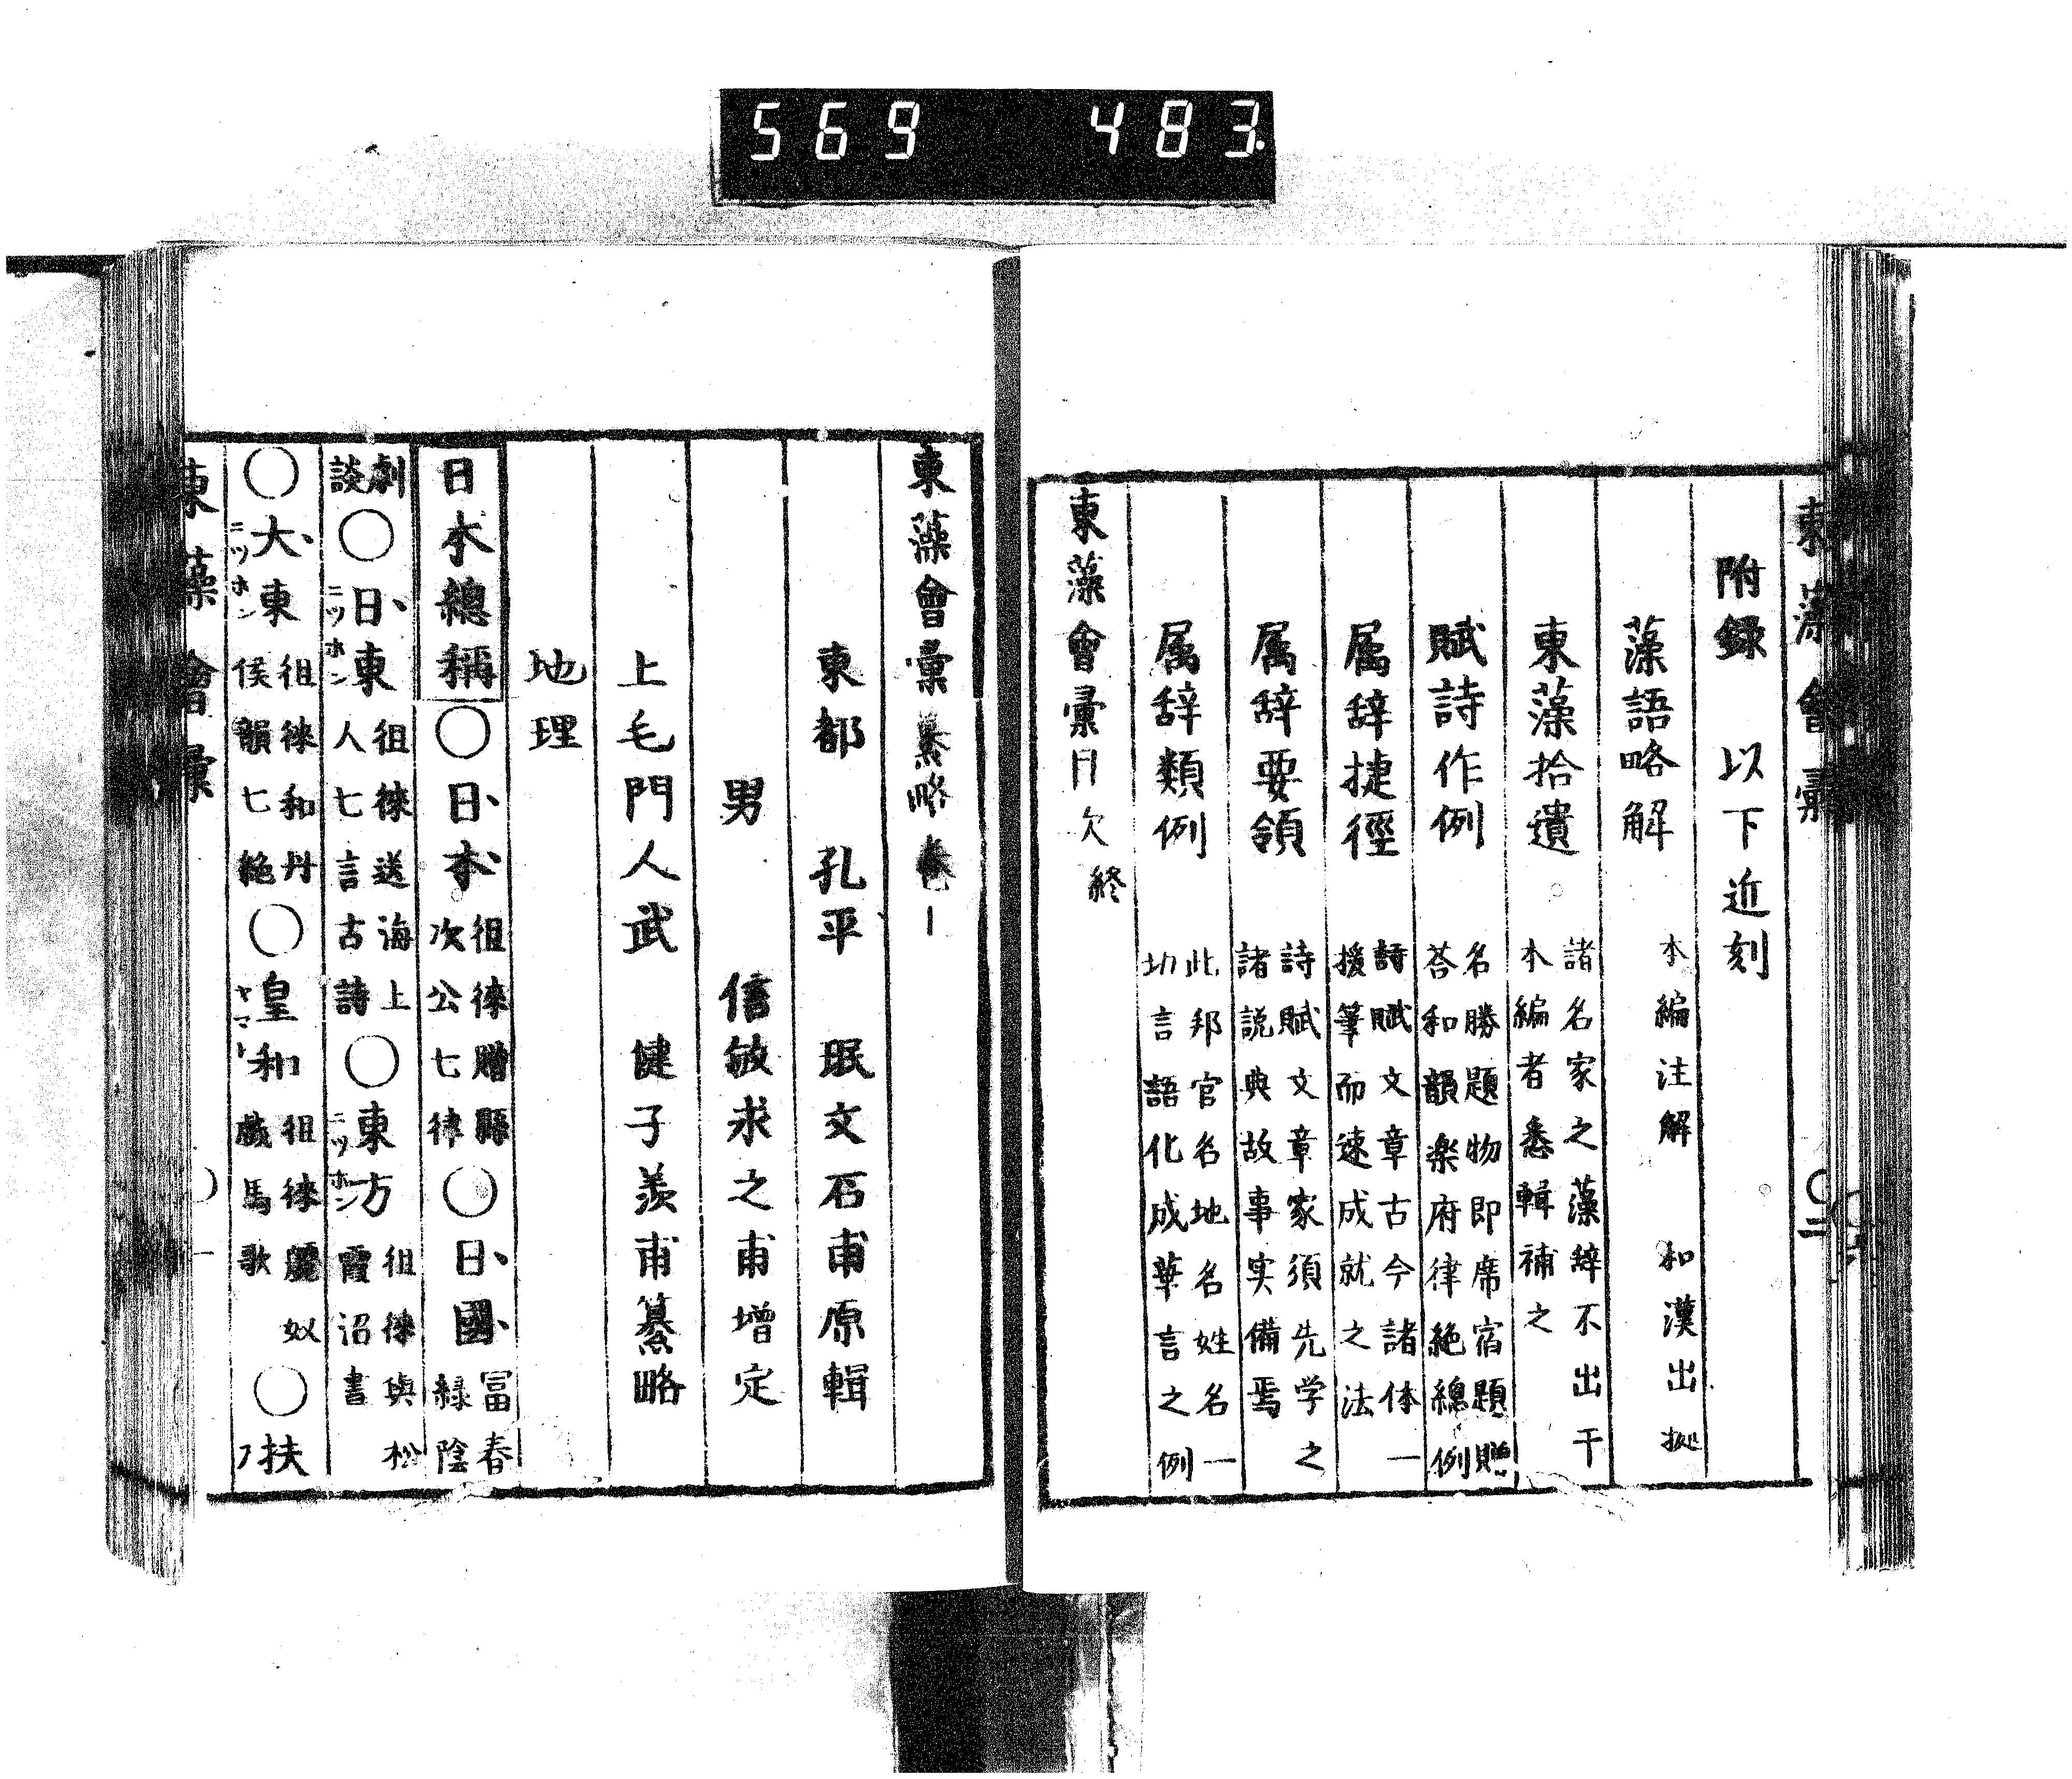 569 483.
東藻會彙
〇二
附録 以下近刻
藻語略解 本編注解 和漢出拠
東藻拾遺 諸名家之藻辞不出干
本編者悉輯補之
賦詩作例 名勝題物即席宿題贈
荅和韻楽府律絶總例
属辞捷徑 詩賦文章古今諸体一
援筆而速成就之法
属辞要領 詩賦文章家須先学之
諸説典故事実備焉
属辞類例 此邦官名地名姓名一
切言語化成華言之例
東藻會彙目次終
東藻會彙纂略巻一
東都 孔平 珉文石甫原輯
男 信敏求之甫增定
上毛門人武 健子羨甫纂略
地理
日本總稱 〇日本 徂徠贈縣
次公七律 〇日國 冨春
緑陰
劇
談 〇日東 ニツホン 徂徠送海上
人七言古詩 〇東方 ニツホン 徂徠與松
霞沼書
〇大東 ニツホン 徂徠和丹
侯韻七絶 〇皇和 ヤマト 徂徠麗奴
戯馬歌 〇扶 フ
東藻會彙
〇一